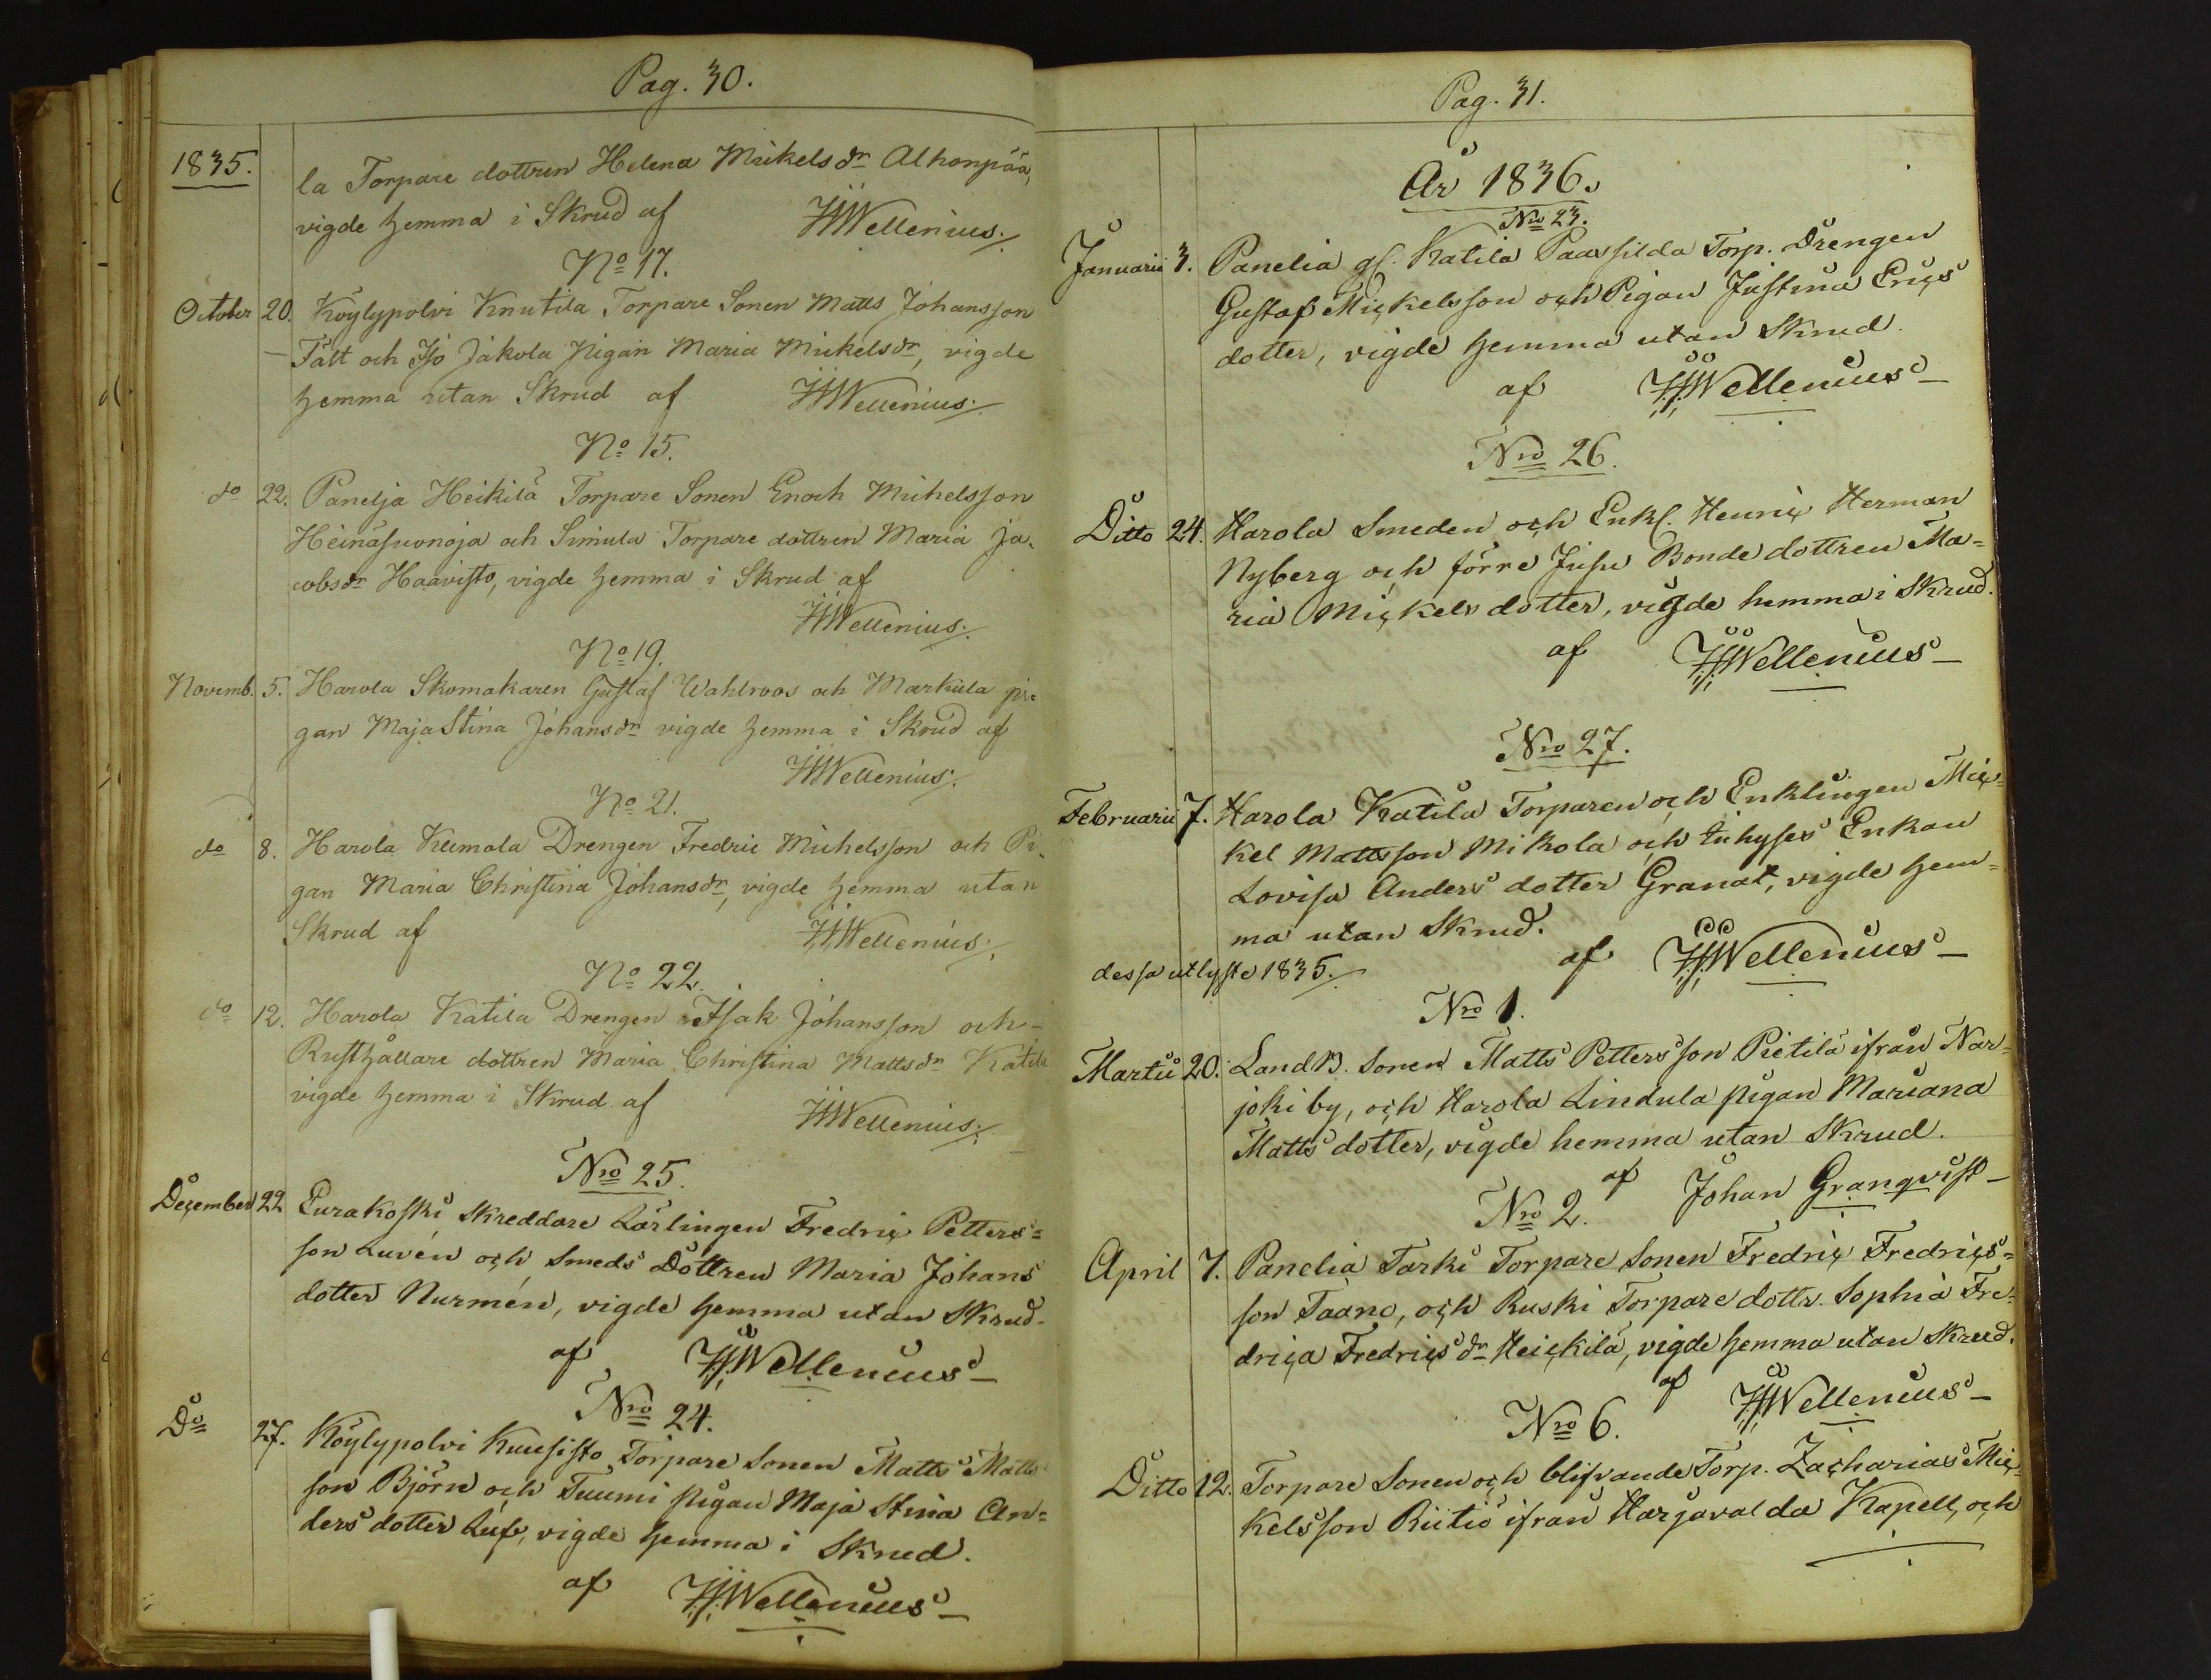 Pag. 30.
1835.
la Torpare dottren Helena Mikels dr Alhonpää,
vigde hemma i Skrud af HWellenius.
No 17.
October 20. Köylypolvi Knutila Torpare Sonen Matts Johansson
Fält och Iso Jakola Pigan Maria Mickelsdr, vigde
hemma utan Skrud af HWellenius.
No 15.
do 22. Panelja Heikilä Torpare Sonen Enoch Michelsson
Heinäsuonoja och Simula Torpare dottren Maria Ja-
cobsdr Haavisto, vigde hemma i Skrud af
HWellenius.
No 19.
Novemb. 5. Harola Skomakaren Gustaf Wahlroos och Markula pi-
gan Maja Stina Johansdr vigde hemma i Skrud af
HWellenius.
No 21.
do 8. Harola Klemola Drengen Fredric Michelsson och Pi-
gan Maria Christina Johansdr, vigde hemma utan
Skrud af HWellenius.
No 22.
do 12. Harola Katila Drengen Isak Johansson och
Rusthållare dottren Maria Christina Mattsdr Katila
vigde hemma i Skrud af HWellenius.
Nro 25.
December 22 Eurakoski Skreddare Lärlingen Fredric Petters=
son Luvén och Smeds Dottren Maria Johans
dotter Nurmén, vigde hemma utan Skrud.
af HWellenius
Nro 24.
Do 27. Köylypolvi Kuusisto Torpare Sonen Matts Matts
son Björn och Tuumi pigan Maja Stina An=
ders dotter, vigde hemma i Skrud.
af HWellenius
Pag. 31.
År 1836.
Nro 23.
Januarii 3. Panelia gl. Katila Paassilda Torp. Drengen
Gustaf Mickelsson och Pigan Justina Erics
dotter, vigde hemma utan Skrud.
af HWellenius
Nro 26.
Ditto 24. Harola Smeden och Enkl. Henric Herman
Nyberg och förre Bonde dottren Ma=
ria Mickels dotter, vigde hemma i Skrud.
af HWellenius
Nro 27.
Februarii 7. Harola Katila Torparen och Enklingen Mic=
kel Mattsson Mikola och Inhyses Enkan
Lovisa Anders dotter Granat, vigde hem=
ma utan Skrud.
af HWellenius
dessa utlyste 1835.
Nro 1.
Martii 20. Land B. Sonen Matts Pettersson Pietilä ifrån Nar=
joki by, och Harola Lindula pigan Mariana
Matts dotter, vigde hemma utan Skrud.
af Johan Granqvist
Nro 2.
April 7. Panelia Tarki Torpare Sonen Fredric Fredrics=
son Taano, och Ruski Torpare dottr. Sophia Fre=
drica Fredrics dr Heickilä, vigde hemma utan Skrud.
af HWellenius
Nro 6.
Ditto 12. Torpare Sonen och blifvande Torp. Zacharias Mic=
kelsson Riitiö ifrån Harjavalda Kapell, och